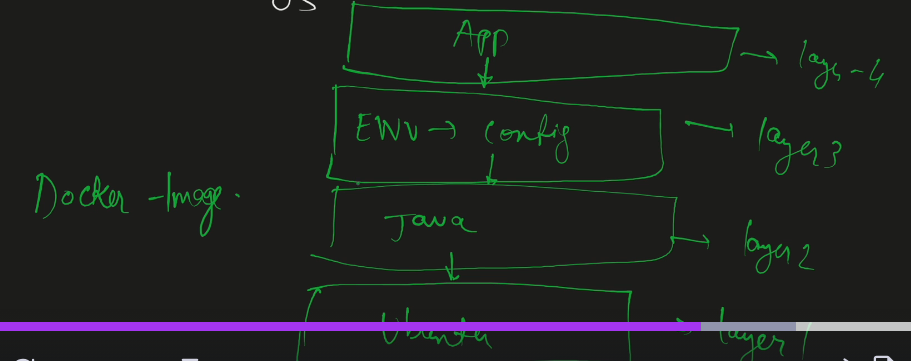 OS
App
layer-4
ENV → Config
layer 3
Docker-Image.
Java
layer 2
Ubuntu
layer